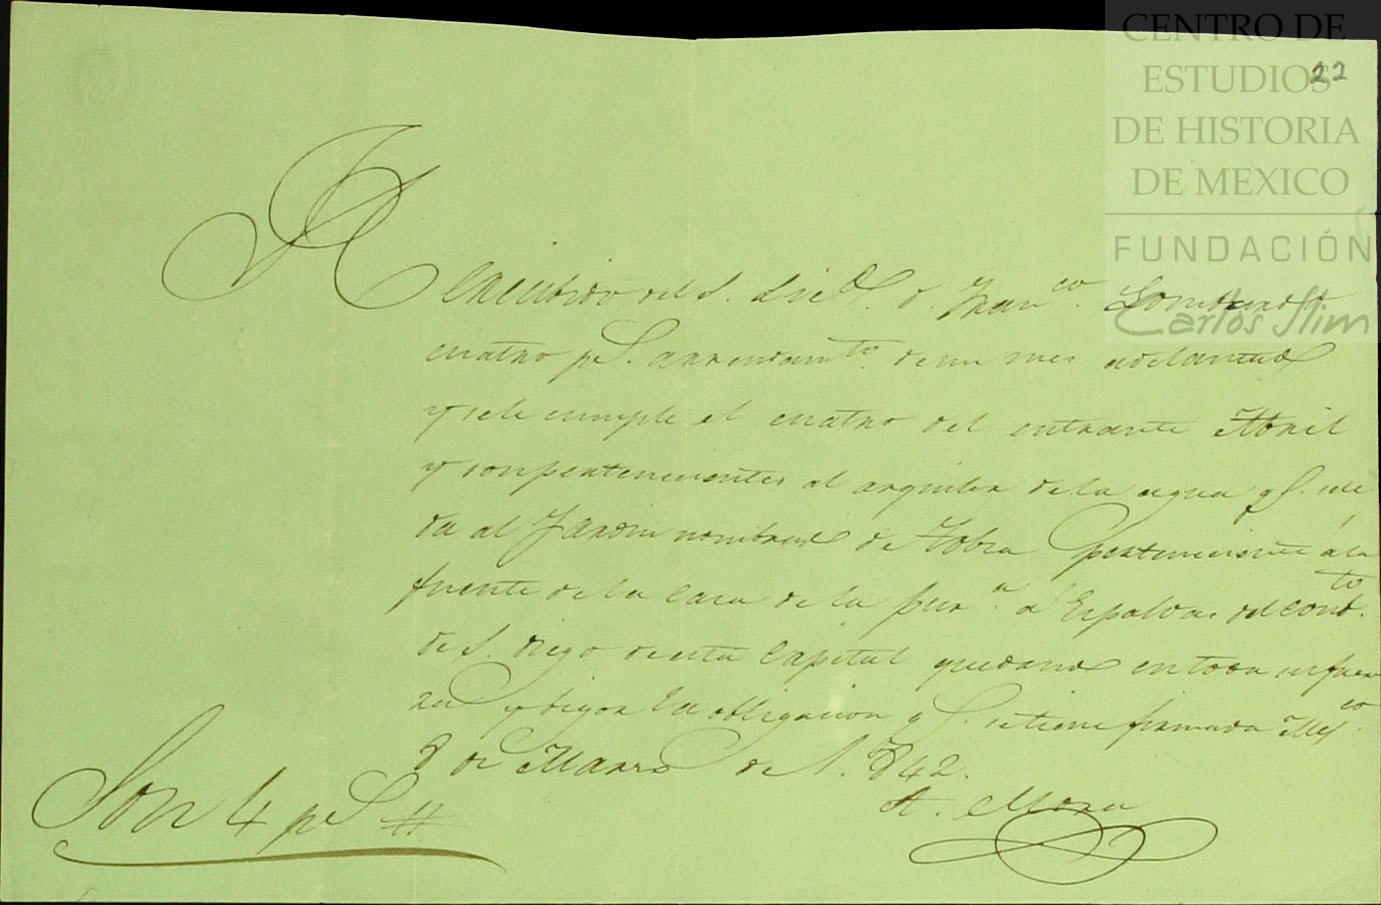 CENTRO DE
ESTUDIOS
22
DE HISTORIA
DE MEXICO
FUNDACIÓN
Carlos Slim
Recibido del S. Licdo. d. Franco. Lombardo
cuatro ps. arrendamto. de un mes adelantado
y se le cumple el cuatro del entrante Abril
y son pertenecientes al arquiler de la agua qe. se le
da al Jardin nombrado de Tobra perteneciente á la
fuente de la Casa de la pura. á Espaldas del Conbto.
de S. diego de esta Capital quedando en toda su fuer
za y bigor la obligacion qe. se tiene firmada Mexco.
8 de Marzo de 1.842.
A. Mora
Son 4 ps. #